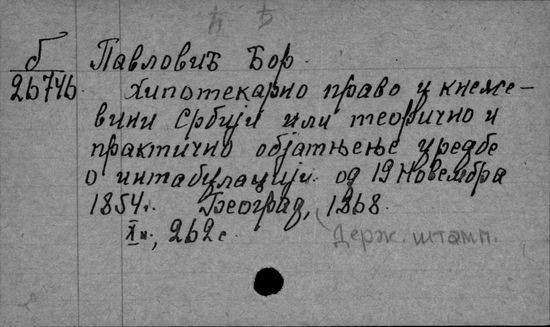 Б
26746
Павловић Бор.
Хипотекарно право и кнеже-
вини Србији или теорично и
практично објатњење уредбе
о интабулацији од 19 новембра
1854г. Београд, 1868.
X н., 262 с.
Держ. штамп.